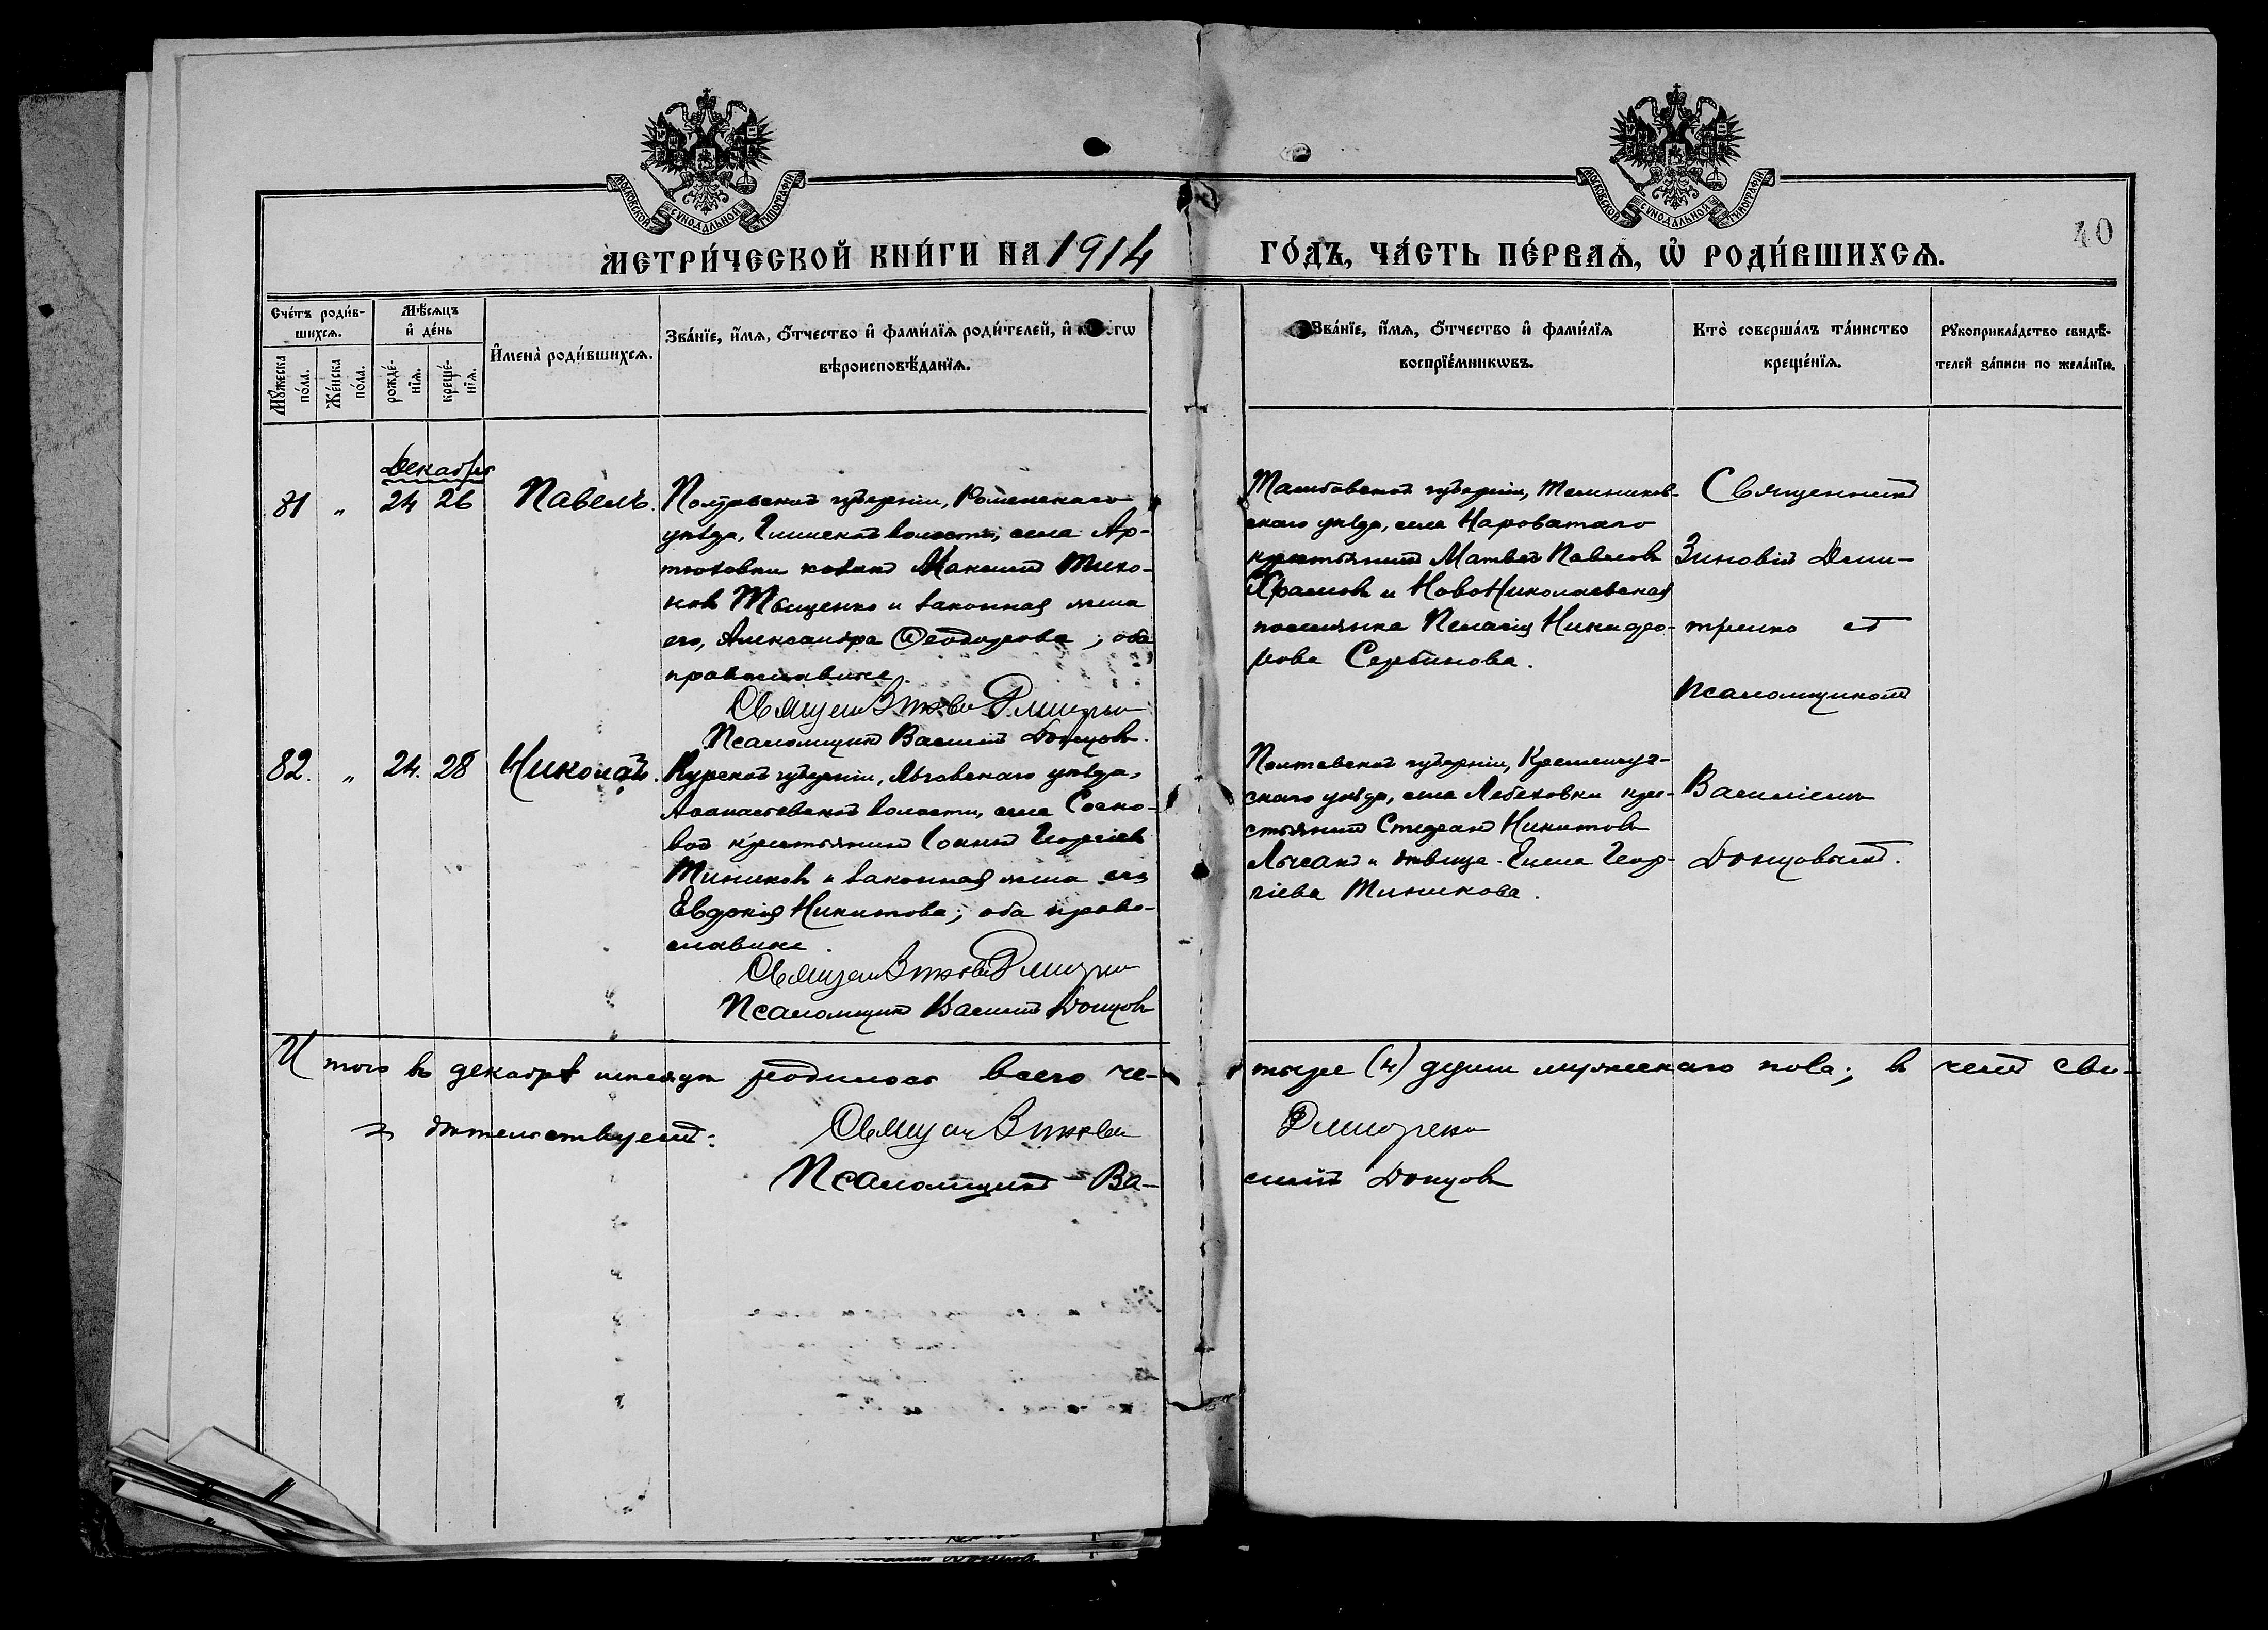 МОСКОВСКОЙ СѴНОДАЛЬНОЙ ТИПОГРАФІИ
МОСКОВСКОЙ СѴНОДАЛЬНОЙ ТИПОГРАФІИ
40
МЕТРИ́ЧЕСКОЙ КНИ́ГИ НА 1914 ГО́ДЪ, ЧА́СТЬ ПЕ́РВАѦ, Ѡ҆ РОДИ́ВШИХСѦ.
Счéтъ роди́в-
шихсѧ.
Мѣ́сѧцъ
и҆ де́нь
Мꙋ́жеска
по́ла.
Же́нска
по́ла.
рожде́-
нїѧ.
креще́-
нїѧ.
И҆мена̀ роди́вшихсѧ.
Зва́нїе, и҆́мѧ, ѻ҆́тчество и҆ фами́лїѧ роди́телей, и҆
вѣроисповѣ́данїѧ.
Зва́нїе, и҆́мѧ, ѻ҆́тчество и҆ фами́лїѧ
воспрїе́мникѡвъ.
Кто̀ соверша́лъ та́инство
креще́нїѧ.
Рꙋкоприкла́дство свидѣ́-
телей за́писи по жела́нїю.
Декабрь
81 " 24 26 Павелъ.
Полтавской губерніи, Роменскаго
уѣзда, волости, села Ар-
тюховки козакъ Максимъ Тихо-
новъ Тыщенко и законная жена
его, Александра Ѳеодорова; оба
православные.
Псаломщикъ Василій Донцовъ.
Тамбовской губерніи, Темников-
скаго уѣзда, села Нароватаго
крестьянинъ Матвей Павловъ
Храмовъ и НовоНиколаевская
поселянка Пелагія Никифо-
рова Сербинова.
Священникъ
Зиновій Дми-
тренко съ
псаломщикомъ
Василіемъ
Донцовымъ.
82. " 24. 28 Николай.
Курской губерніи, Льговскаго уѣзда,
волости, села Сосно-
вой крестьянинъ Іоаннъ Георгіевъ
Тиняковъ и законная жена его
Евдокія Никитова; оба право-
славные.
Псаломщикъ Василій Донцовъ
Полтавской губерніи, Кременчуг-
скаго уѣзда, села кре-
стьянинъ Стефанъ Никитовъ
Лысакъ и дѣвица Елена Геор-
гіева Тинякова.
Итого въ декабрѣ мѣсяцѣ родилось всего че-
тыре (4) души мужескаго пола; въ чемъ сви-
дѣтельствуемъ:
Псаломщикъ Ва-
силій Донцовъ